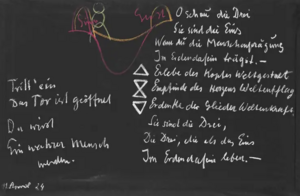 O schau die Drei
Sie sind die Eins
Wenn du die Menschenprägung
Im Erdendasein trägst. –
Erlebe des Kopfes Weltgestalt
Empfinde des Herzens Weltenschlag
Erdenke der Glieder Weltenkraft
Sie sind die Drei,
Die Drei, die als das Eins
Im Erdendasein leben. –
Tritt ein
Das Tor ist geöffnet
Du wirst
Ein wahrer Mensch
werden.
24